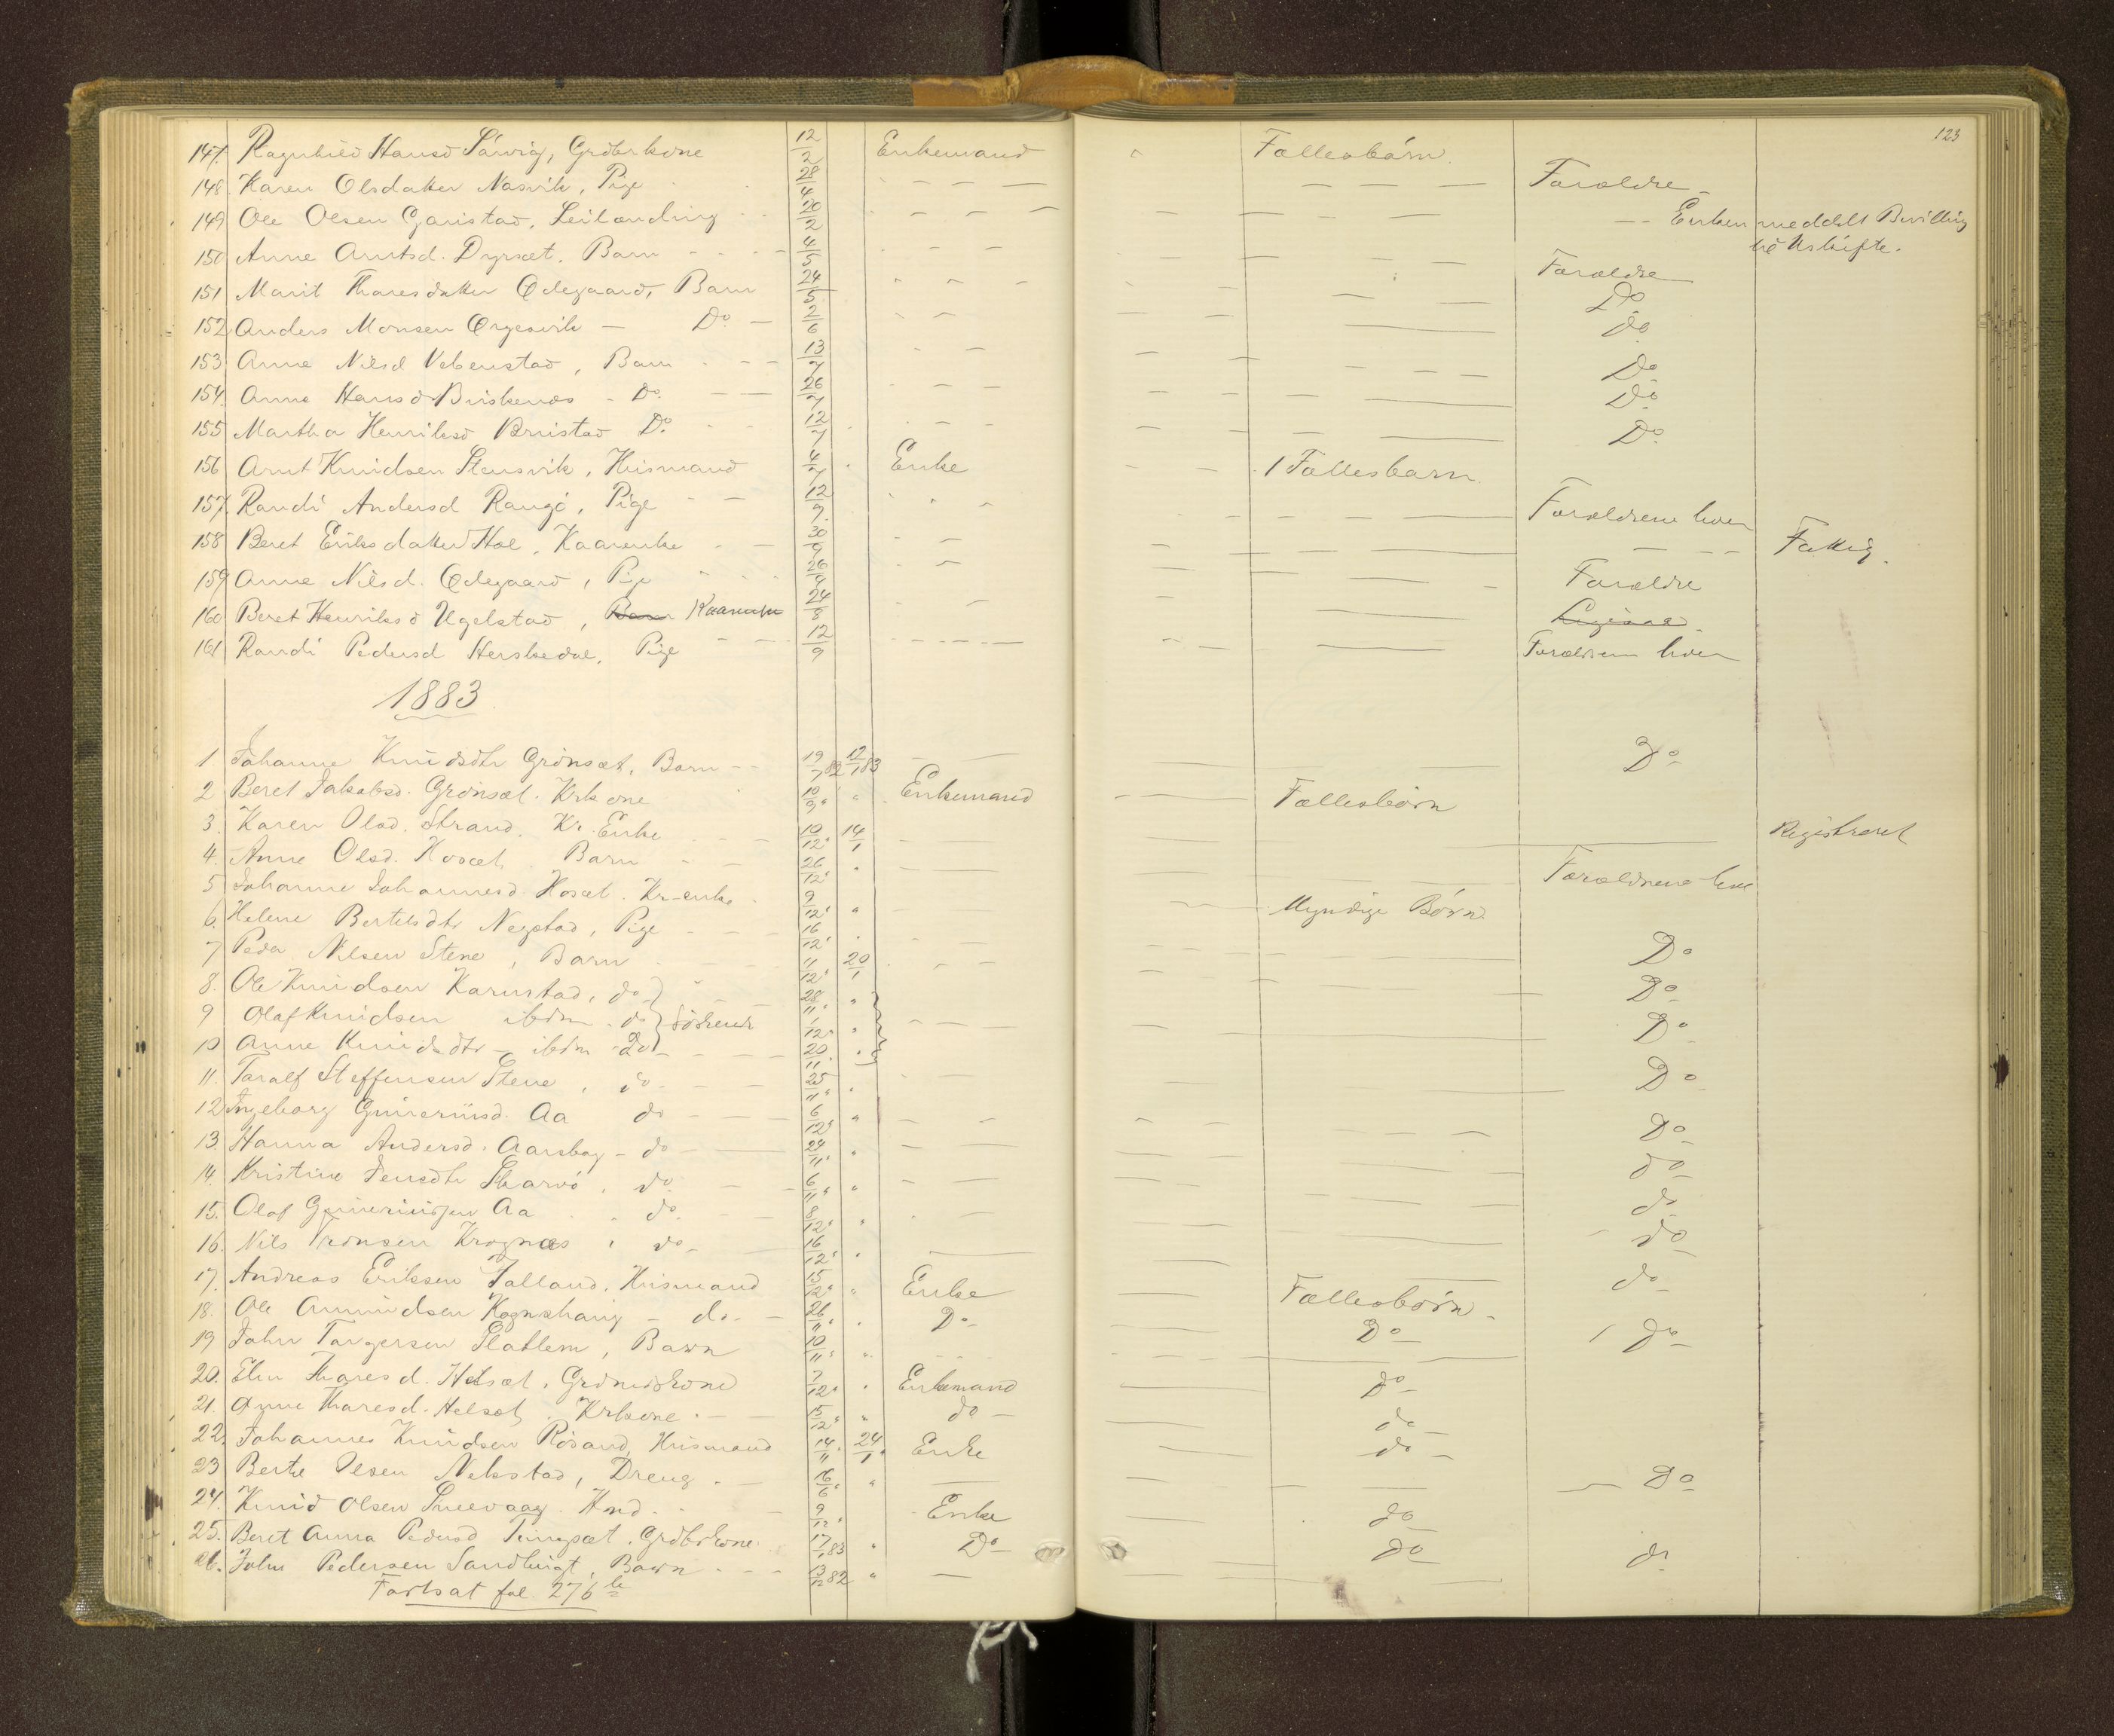 123
147. Ragnhild Hansd Sårvig, Grdbrkone 12/2 Enkemand " Fællesbørn.
148. Karen Olsdatter Næsvik, Pige 28/4 - - - Forældre
149 Ole Olsen Gaustad, Leilænding 20/2 - - - Enken meddelt Bevilling
til Uskifte.
150. Anne Arntsd. Dyrsæt. Barn 4/5 - - - Forældre
151 Marit Tharesdatter Ødegaard, Barn 24/5 " - - Do
152 Anders Monsen Ørgesvik - Do - 2/6 - - do
153 Anne Nilsd Vebenstad, Barn 13/7 - - Do
154. Anne Hansd Briskenæs - Do. 26/7 - - Do
155 Martha Henriksd Brustad Do. 12/7 - - - Do
156 Arnt Knudsen Stensvik, Husmand 4/7 " Enke - - 1 Fællesbarn.
157. Randi Andersd Rangö, Pige 12/9. " " " Forældrene lever
158 Beret Eriksdatter Hol, Kaarenke 30/9 - - - - - Fattig.
159 Anne Nilsd. Ødegaard, Pige 26/9 - Forældre
160 Beret Henriksd Ugelstad, Barn Kaarenke 24/8 - -
161 Randi Pedersd Herskedal, Pige 12/9 - - - Forældrene lever
1883
1 Johanne Knudsdtr Grönset, Barn - - 19/7 82 12/1 83 - Do
2 Beret Jakobsd. Grönsæt. Krkone 10/9 " " Enkemand - - Fællesbørn
3. Karen Olsd. Strand. Kr. Enke 10/12 " 14/1 - - Registreret
4. Anne Olsd. Hosæt. Barn - - 26/12 " " - - Forældrene leve
5 Johanne Johannesd. Hosæt. Kr-enke 9/12 " " - - Myndige Börn
6. Helene Bertelsdtr Negstad, Pige 16/12 " " - - Do
7 Peder Nilsen Stene, Barn 11/12 " 20/1 " - - Do
8. Ole Knudsen Karnstad, do } 28/11 " " - Do
9 Olaf Knudsen ibdm. do } Södskende 1/12 " " - - -
10 Anne Knudsdtr - ibdm - Do } 20/11 " " - - Do
11. Toralf Steffensen Stene, do - 25/11 " " - -
12 Ingeborg Gunneriusd. Aa do - 6/12 " " - - Do
13. Hanna Andersd. Aarsbog - do - 24/11 " " - do
14. Kristine Jensdtr Skarvö, do. 6/11 " " - - do
15. Olaf Gunneriussen Aa " do. 8/12 " " - - do
16. Nils Tronsen Krognæs " do - 16/12 " " -
17. Andreas Eriksen Talland, Husmand 15/12 " " Enke - Fællesbørn - do
18. Ole Amundsen Kognshaug - do. - 26/11 " " Do - Do - 1 do
19 John Torgersen Flatlem, Barn 10/11 " "
20. Elen Tharesd. Helsæt, Grdmdskone 7/12 " " Enkemand - do
21. Anne Tharesd. Helsæt. Krkone. - 15/12 " " do - do
22. Johannes Knudsen Rösand, Husmand 14/11 " 24/1 " Enke - do -
23 Berte Olsen Nekstad, Dreng. - 16/6 " " - Do
24. Knud Olsen Sneevaag. Hmd. 9/12 " Enke - do
25. Beret Anna Pedersd Tungsæt. Grdbrkone. 17/1 83 " Do - do
26. John Pedersen Sandbugt, Barn - - - 13/12 82 " - do
Fortsat fol. 276 b